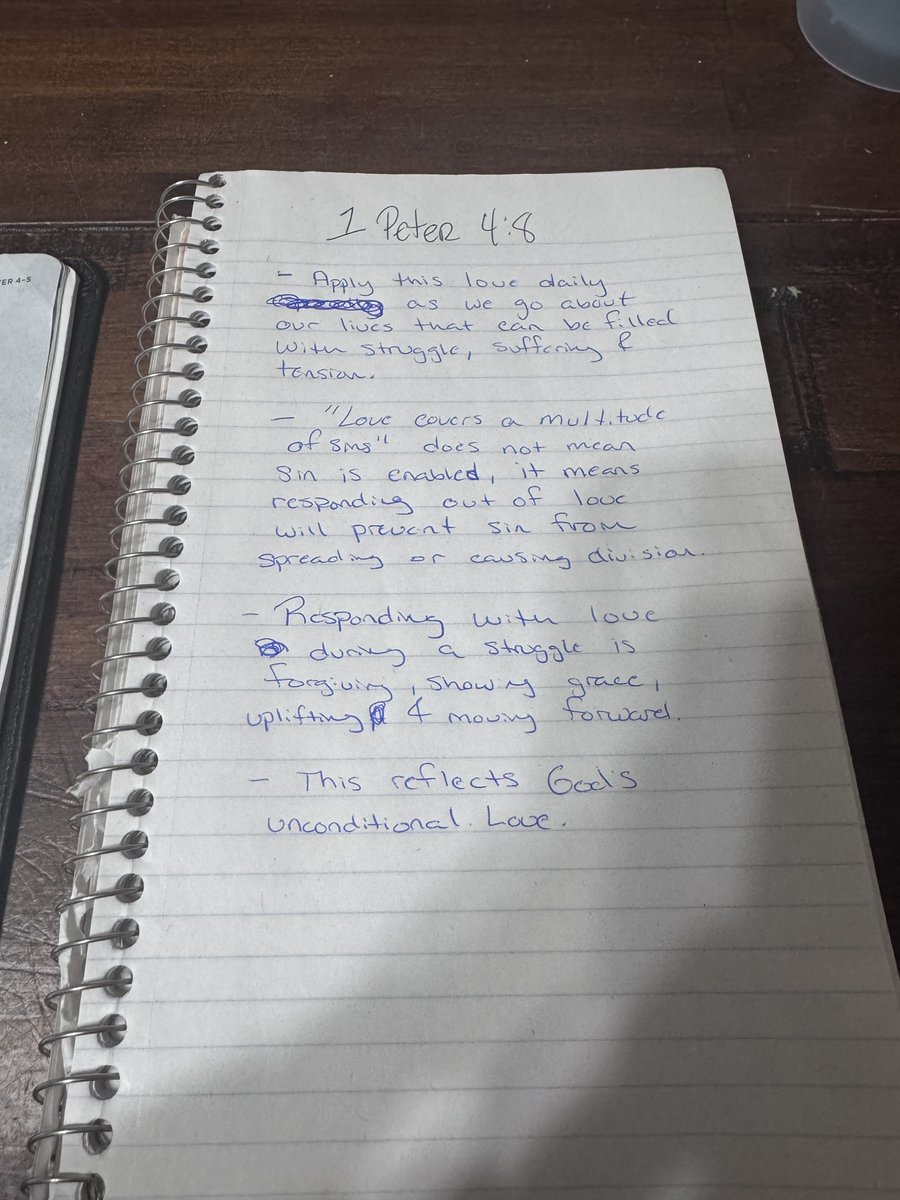 ER 4-5
1 Peter 4:8
- Apply this love daily
as we go about
our lives that can be filled
with struggle, suffering &
tension.
- "Love covers a multitude
of sins" does not mean
sin is enabled, it means
responding out of love
will prevent sin from
spreading or causing division.
- Responding with love
during a struggle is
forgiving, showing grace,
uplifting & moving forward.
- This reflects God's
unconditional. Love.